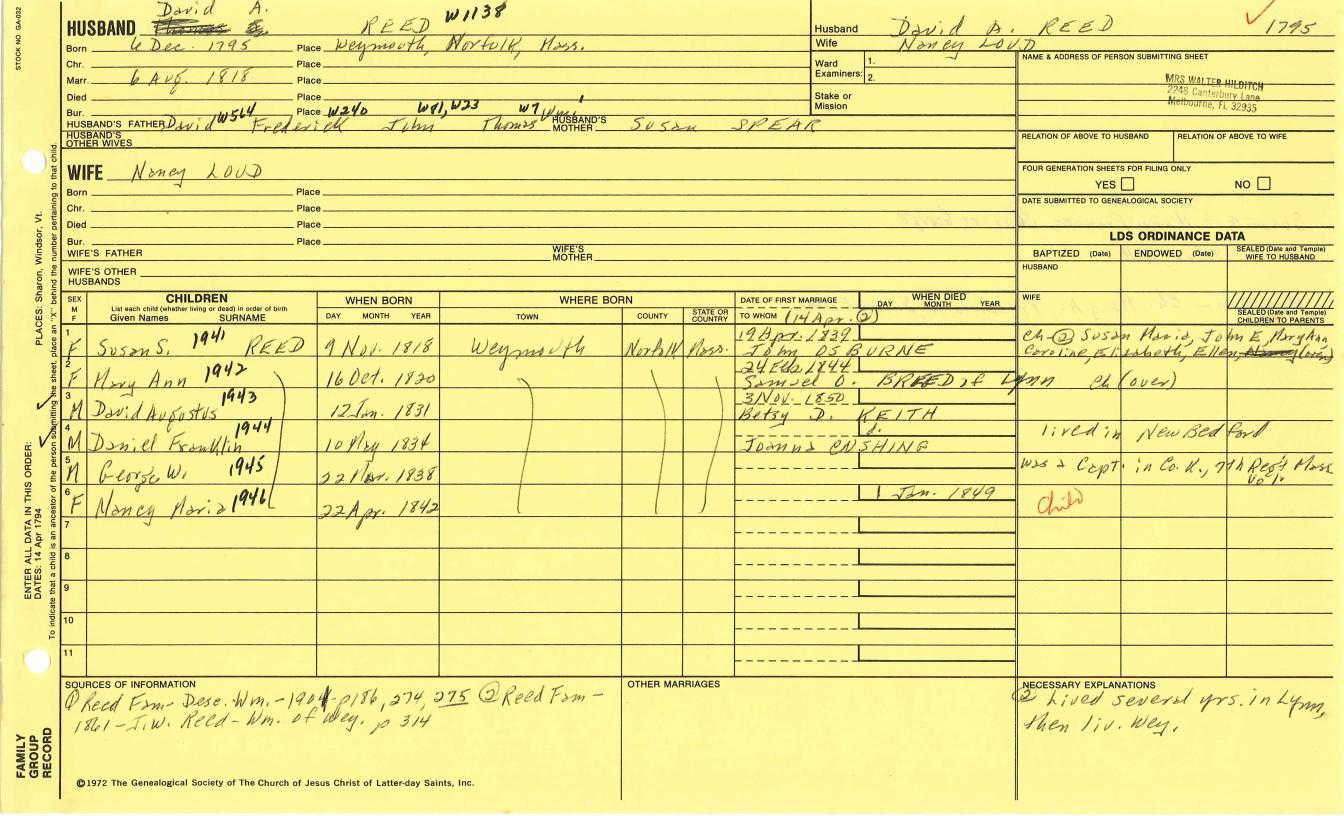 STOCK NO. GA-032
David A.
HUSBAND REED W1138
Born 6 Dec. 1795 Place Weymouth, Norfolk, Mass.
Chr. Place
Marr. 6 Aug. 1818 Place
Died Place
Bur. Place
W564 W240 W81, W23 W7
HUSBAND'S FATHER David Frederick John Thomas HUSBAND'S MOTHER Susan SPEAR
HUSBAND'S OTHER WIVES
Husband David A. REED 1795
Wife Nancy LOUD
Ward Examiners: 1.
2.
Stake or Mission
NAME & ADDRESS OF PERSON SUBMITTING SHEET
MRS WALTER HILDITCH
2248 Canterbury Lane
Melbourne, Fl. 32935
RELATION OF ABOVE TO HUSBAND RELATION OF ABOVE TO WIFE
FOUR GENERATION SHEETS FOR FILING ONLY
YES NO
DATE SUBMITTED TO GENEALOGICAL SOCIETY
WIFE Nancy LOUD
Born Place
Chr. Place
Died Place
Bur. Place
WIFE'S FATHER WIFE'S MOTHER
WIFE'S OTHER HUSBANDS
LDS ORDINANCE DATA
BAPTIZED (Date) ENDOWED (Date) SEALED (Date and Temple) WIFE TO HUSBAND
HUSBAND
WIFE
SEALED (Date and Temple) CHILDREN TO PARENTS
SEX M F CHILDREN List each child (whether living or dead) in order of birth Given Names SURNAME WHEN BORN DAY MONTH YEAR WHERE BORN TOWN COUNTY STATE OR COUNTRY DATE OF FIRST MARRIAGE TO WHOM (14 Apr. ②) WHEN DIED DAY MONTH YEAR
1 F Susan S. 1941 REED 9 Nov. 1818 Weymouth Norfolk Mass. 19 Apr. 1839 John OSBURNE
ch ② Susan Maria, John E, Mary Ann
Caroline, Elizabeth, Ellen, Nancy (over)
2 F Mary Ann 1942 16 Oct. 1820 24 Feb. 1844 Samuel O. BREED of Lynn Ch (over)
3 M David Augustus 1943 12 Jan. 1831 3 Nov. 1850 Betsy D. KEITH
4 M Daniel Franklin 1944 10 May 1834 d. Joanna CUSHING lived in New Bedford
5 M George W. 1945 22 Mar. 1838 was a Capt. in Co. K., 7th Reg't Mass Vol.
6 F Nancy Maria 1946 22 Apr. 1842 1 Jan. 1849 Child
7
8
9
10
11
SOURCES OF INFORMATION
① Reed Fam- Desc. Wm.- 1901- p186, 274, 275 ② Reed Fam-
1861- J.W. Reed- Wm. of Wey. p 314
OTHER MARRIAGES
NECESSARY EXPLANATIONS
② Lived several yrs. in Lynn,
then liv. Wey.
©1972 The Genealogical Society of The Church of Jesus Christ of Latter-day Saints, Inc.
FAMILY GROUP RECORD
ENTER ALL DATA IN THIS ORDER:
DATES: 14 Apr 1794 PLACES: Sharon, Windsor, Vt.
To indicate that a child is an ancestor of the person submitting the sheet, place an "X" behind the number pertaining to that child.